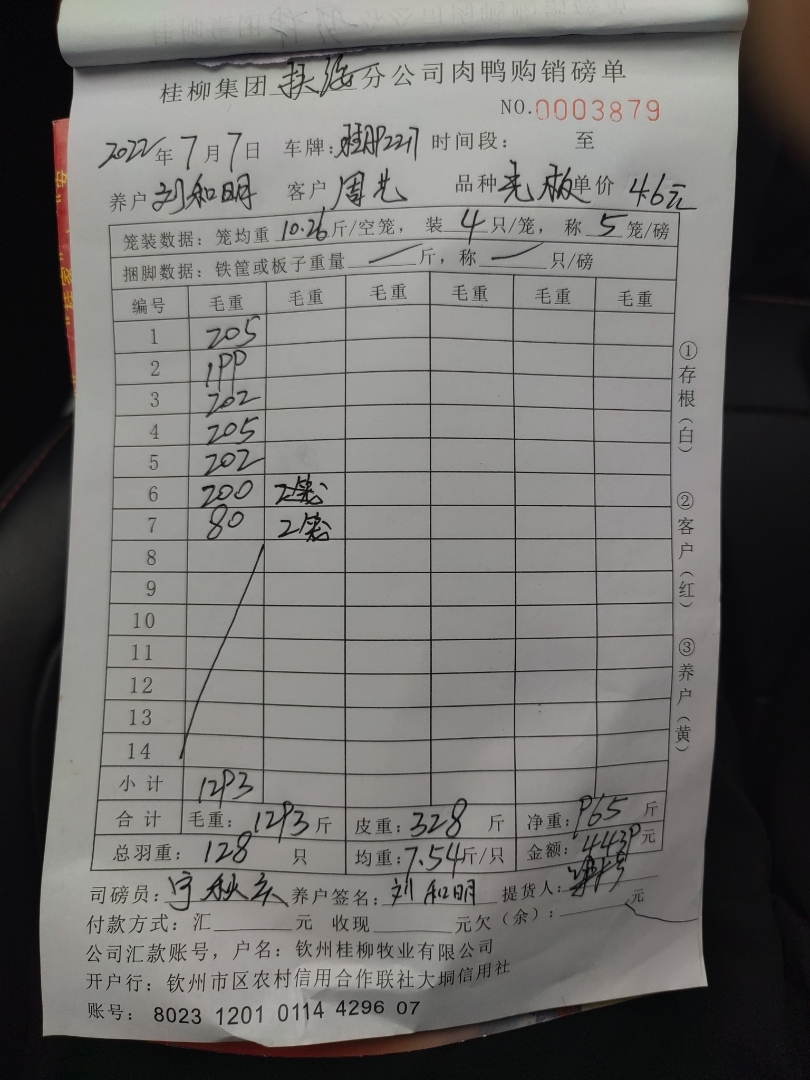 桂柳集团 扶海 分公司肉鸭购销磅单
NO.0003879
2022年7月7日 车牌: 时间段: 至
养户 刘和明 客户 周光 品种 光板 单价 4.6元
笼装数据: 笼均重 10.26 斤/空笼, 装 4 只/笼, 称 5 笼/磅
捆脚数据: 铁筐或板子重量 斤, 称 只/磅
编号 毛重 毛重 毛重 毛重 毛重 毛重
1 205
2 199
3 202
4 205
5 202
6 200
7 80 2笼
8
9
10
11
12
13
14
小计 1293
合计 毛重: 1293 斤 皮重: 328 斤 净重: 965 斤
总羽重: 128 只 均重: 7.54 斤/只 金额: 4439 元
司磅员: 养户签名: 刘和明 提货人:
付款方式: 汇 元 收现 元欠(余): 元
公司汇款账号, 户名: 钦州桂柳牧业有限公司
开户行: 钦州市区农村信用合作联社大垌信用社
账号: 8023 1201 0114 4296 07
①存根(白) ②客户(红) ③养户(黄)